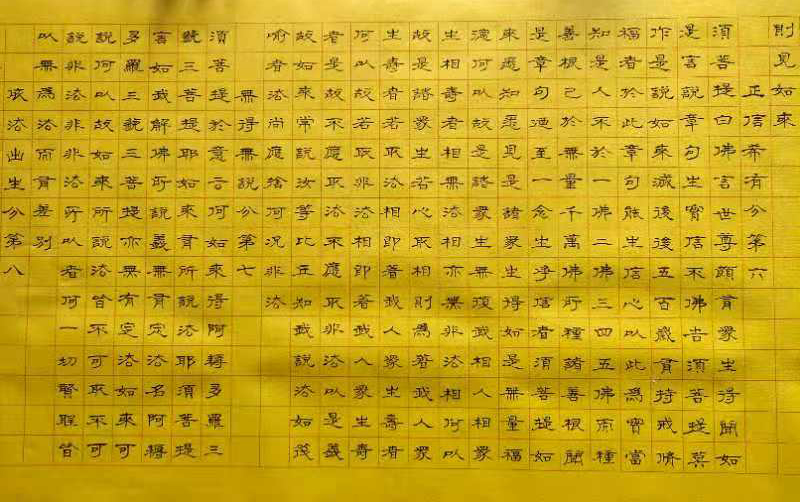 則見如來
正信希有分第六
須菩提白佛言世尊頗有眾生得聞如
是言說章句生實信不佛告須菩提莫
作是說如來滅後後五百歲有持戒脩
福者於此章句能生信心以此為實當
知是人不於一佛二佛三四五佛而種
善根已於無量千萬佛所種諸善根聞
是章句乃至一念生淨信者須菩提如
來悉知悉見是諸眾生得如是無量福
德何以故是諸眾生無復我相人相眾
生相壽者相無法相亦無非法相何以
故是諸眾生若心取相則為著我人眾
生壽者若取法相即著我人眾生壽者
何以故若取非法相即著我人眾生壽
者是故不應取法不應取非法以是義
故如來常說汝等比丘知我說法如筏
喻者法尚應捨何況非法
無得無說分第七
須菩提於意云何如來得阿耨多羅三
藐三菩提耶如來有所說法耶須菩提
言如我解佛所說義無有定法名阿耨
多羅三藐三菩提亦無有定法如來可
說何以故如來所說法皆不可取不可
說非法非非法所以者何一切賢聖皆
以無為法而有差別
依法出生分第八